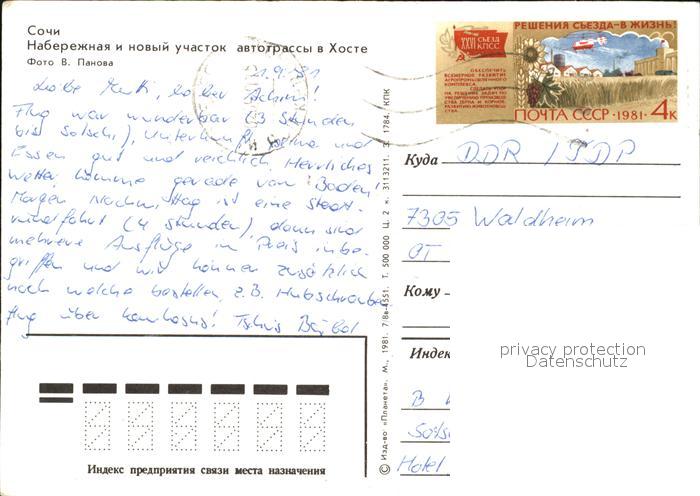 Сочи
Набережная и новый участок автотрассы в Хосте
Фото В. Панова
21.9.81
Liebe Mutti, lieber Achim!
Flug war wunderbar (3 Stunden
bis Sotschi), Unterkunft prima und
Essen gut und reichlich. Herrliches
Wetter, komme gerade vom Baden!
Morgen Nachmittag ist eine Stadt-
rundfahrt (4 Stunden), dann sind
mehrere Ausflüge im Preis inbe-
griffen und wir können zusätzlich
noch welche bestellen, z.B. Hubschrauber
flug über Kaukasus! Tschüs Bärbel
Индекс предприятия связи места назначения
© Изд-во «Планета». М., 1981. 7/8в-4551. Т. 500 000 Ц. 2 к. 3113211. З. 1784. КПК
XXVI СЪЕЗД КПСС
ОБЕСПЕЧИТЬ
ВСЕМЕРНОЕ РАЗВИТИЕ
АГРОПРОМЫШЛЕННОГО
КОМПЛЕКСА
РЕШЕНИЯ СЪЕЗДА-В ЖИЗНЬ!
ПОЧТА СССР·1981·4К
Куда DDR /
7305 Waldheim
OT
Кому
Индекс
privacy protection
Datenschutz
B
Sots
Hotel